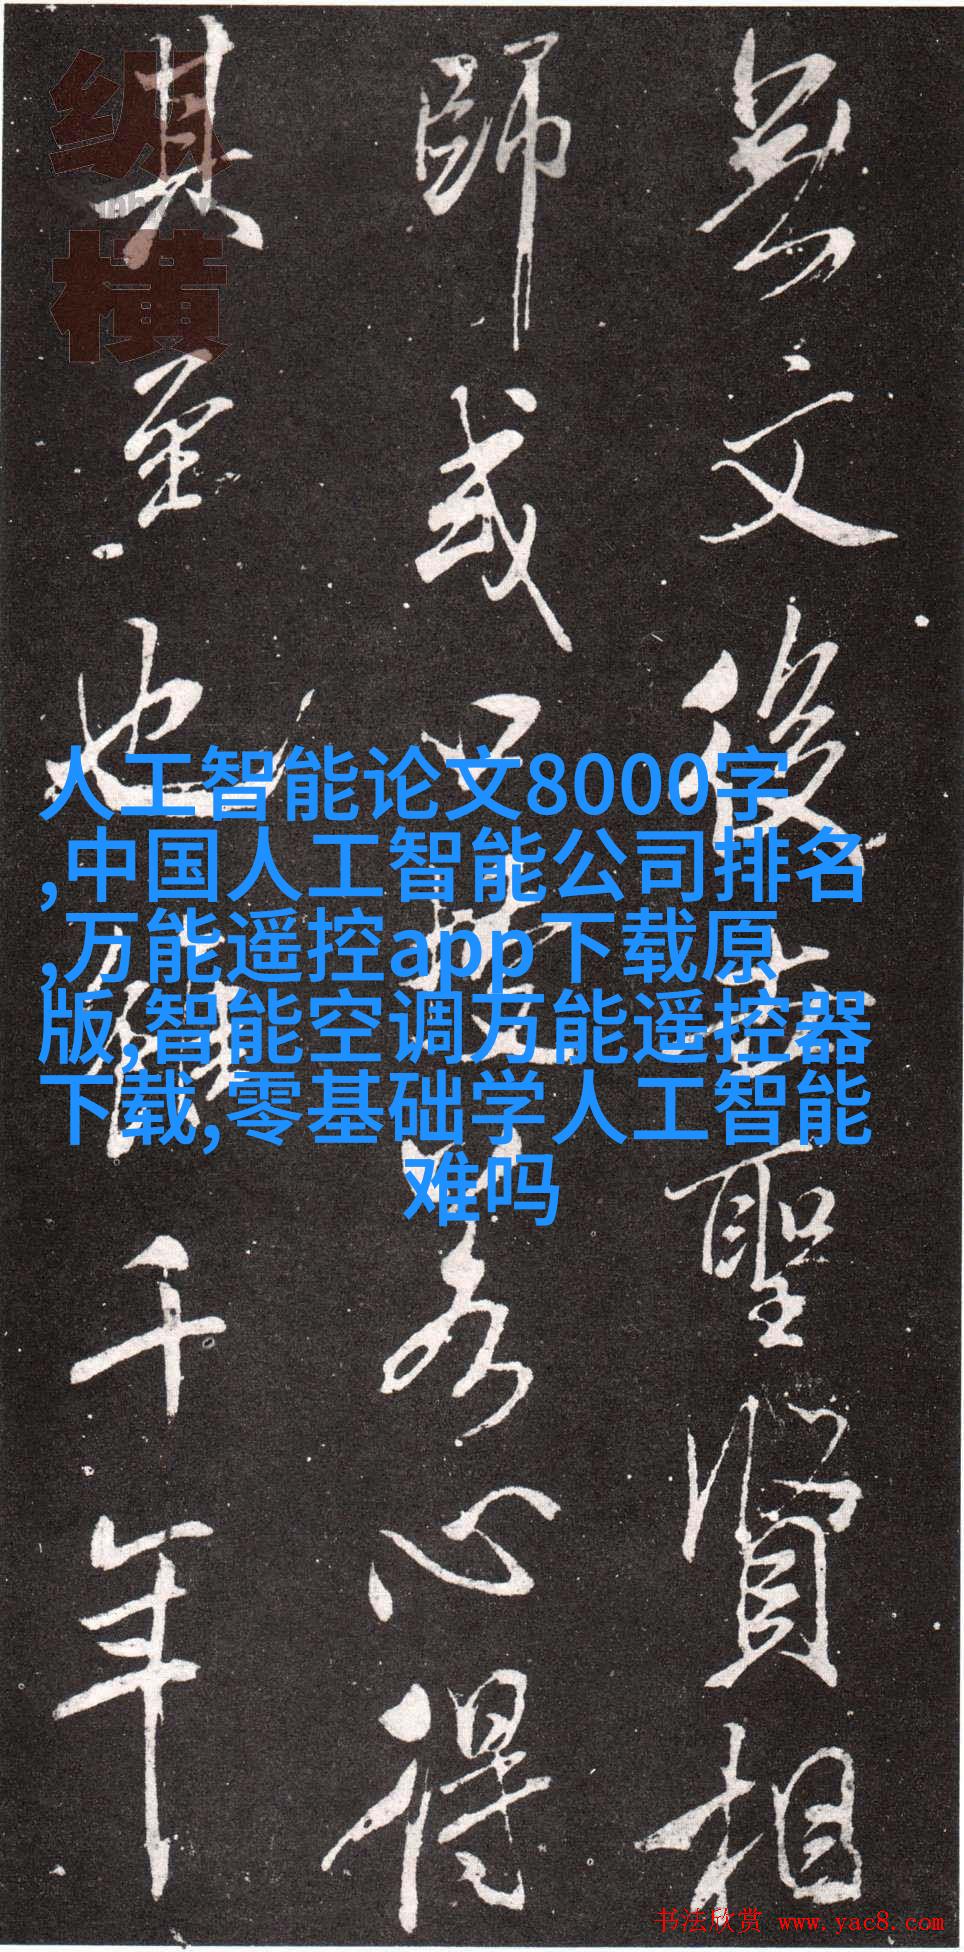 文後聖賢相
師或心得
其至也雖千年
横
人工智能论文8000字
,中国人工智能公司排名
,万能遥控app下载原
版,智能空调万能遥控器
下载,零基础学人工智能
难吗
书法欣赏 www.yac8.com